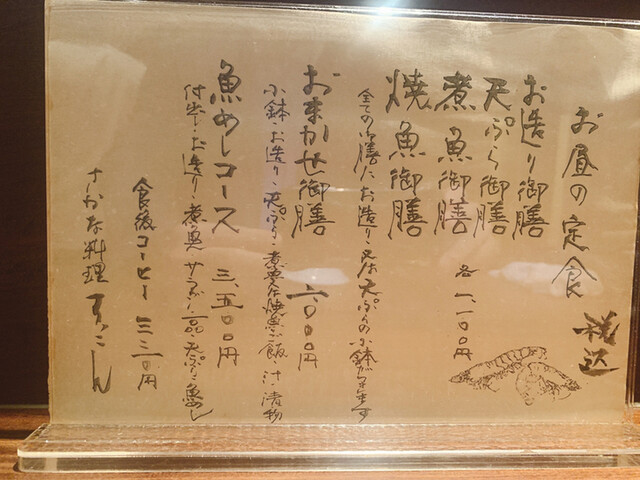 お昼の定食
税込
お造り御膳
天ぷら御膳
煮魚御膳
焼魚御膳
各一、一〇〇円
全ての御膳に、お造り・又は天ぷらの小鉢が付きます
おまかせ御膳
小鉢・お造り・天ぷら・煮魚又は焼魚・ご飯・汁・漬物
魚めしコース 三、五〇〇円
付出し・お造り・煮魚・サラダ・一品・天ぷら・魚めし
食後コーヒー 三三〇円
さかな料理